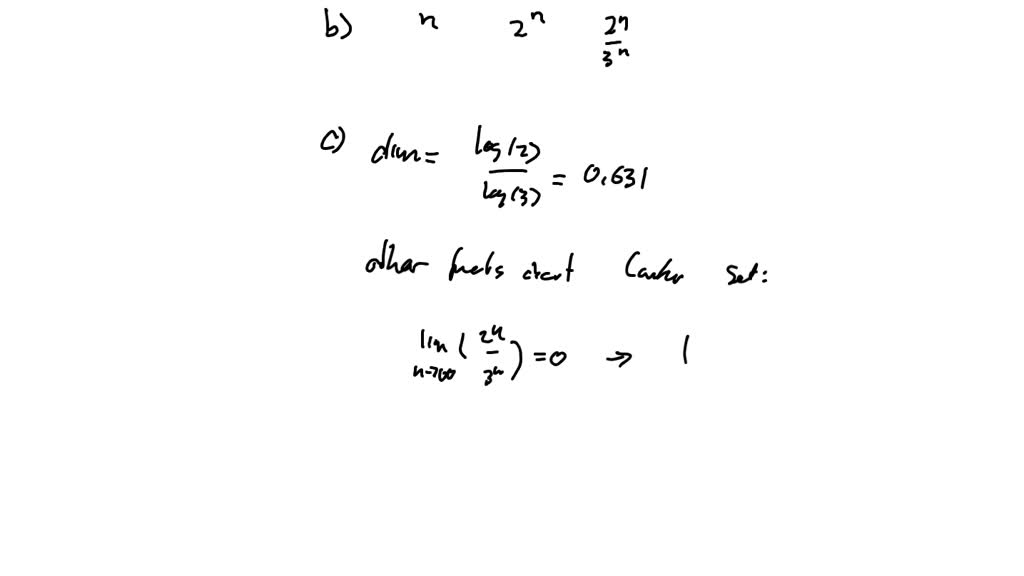 b) n 2^n 2^n/3^n
c) dim = log(2)/log(3) = 0.631
other facts about Cantor set:
lim n→∞ (2^n/3^n) = 0 ⇒ |